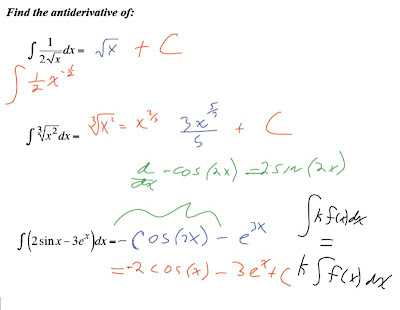 Find the antiderivative of:
∫ 1/(2√x) dx = √x + C
∫ 1/2 x^(-1/2)
∫ ∛(x²) dx = ∛(x²) = x^(2/3) 3x^(5/3)/5 + C
d/dx -cos(2x) = 2sin(2x)
∫(2 sin x − 3e^x)dx = -cos(2x) - e^(3x)
= -2cos(x) - 3e^x + C
∫k f(x)dx
=
k∫f(x)dx